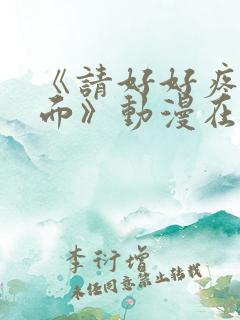 《請好好疼
而》動漫在
李衍增
未經同意禁止轉載